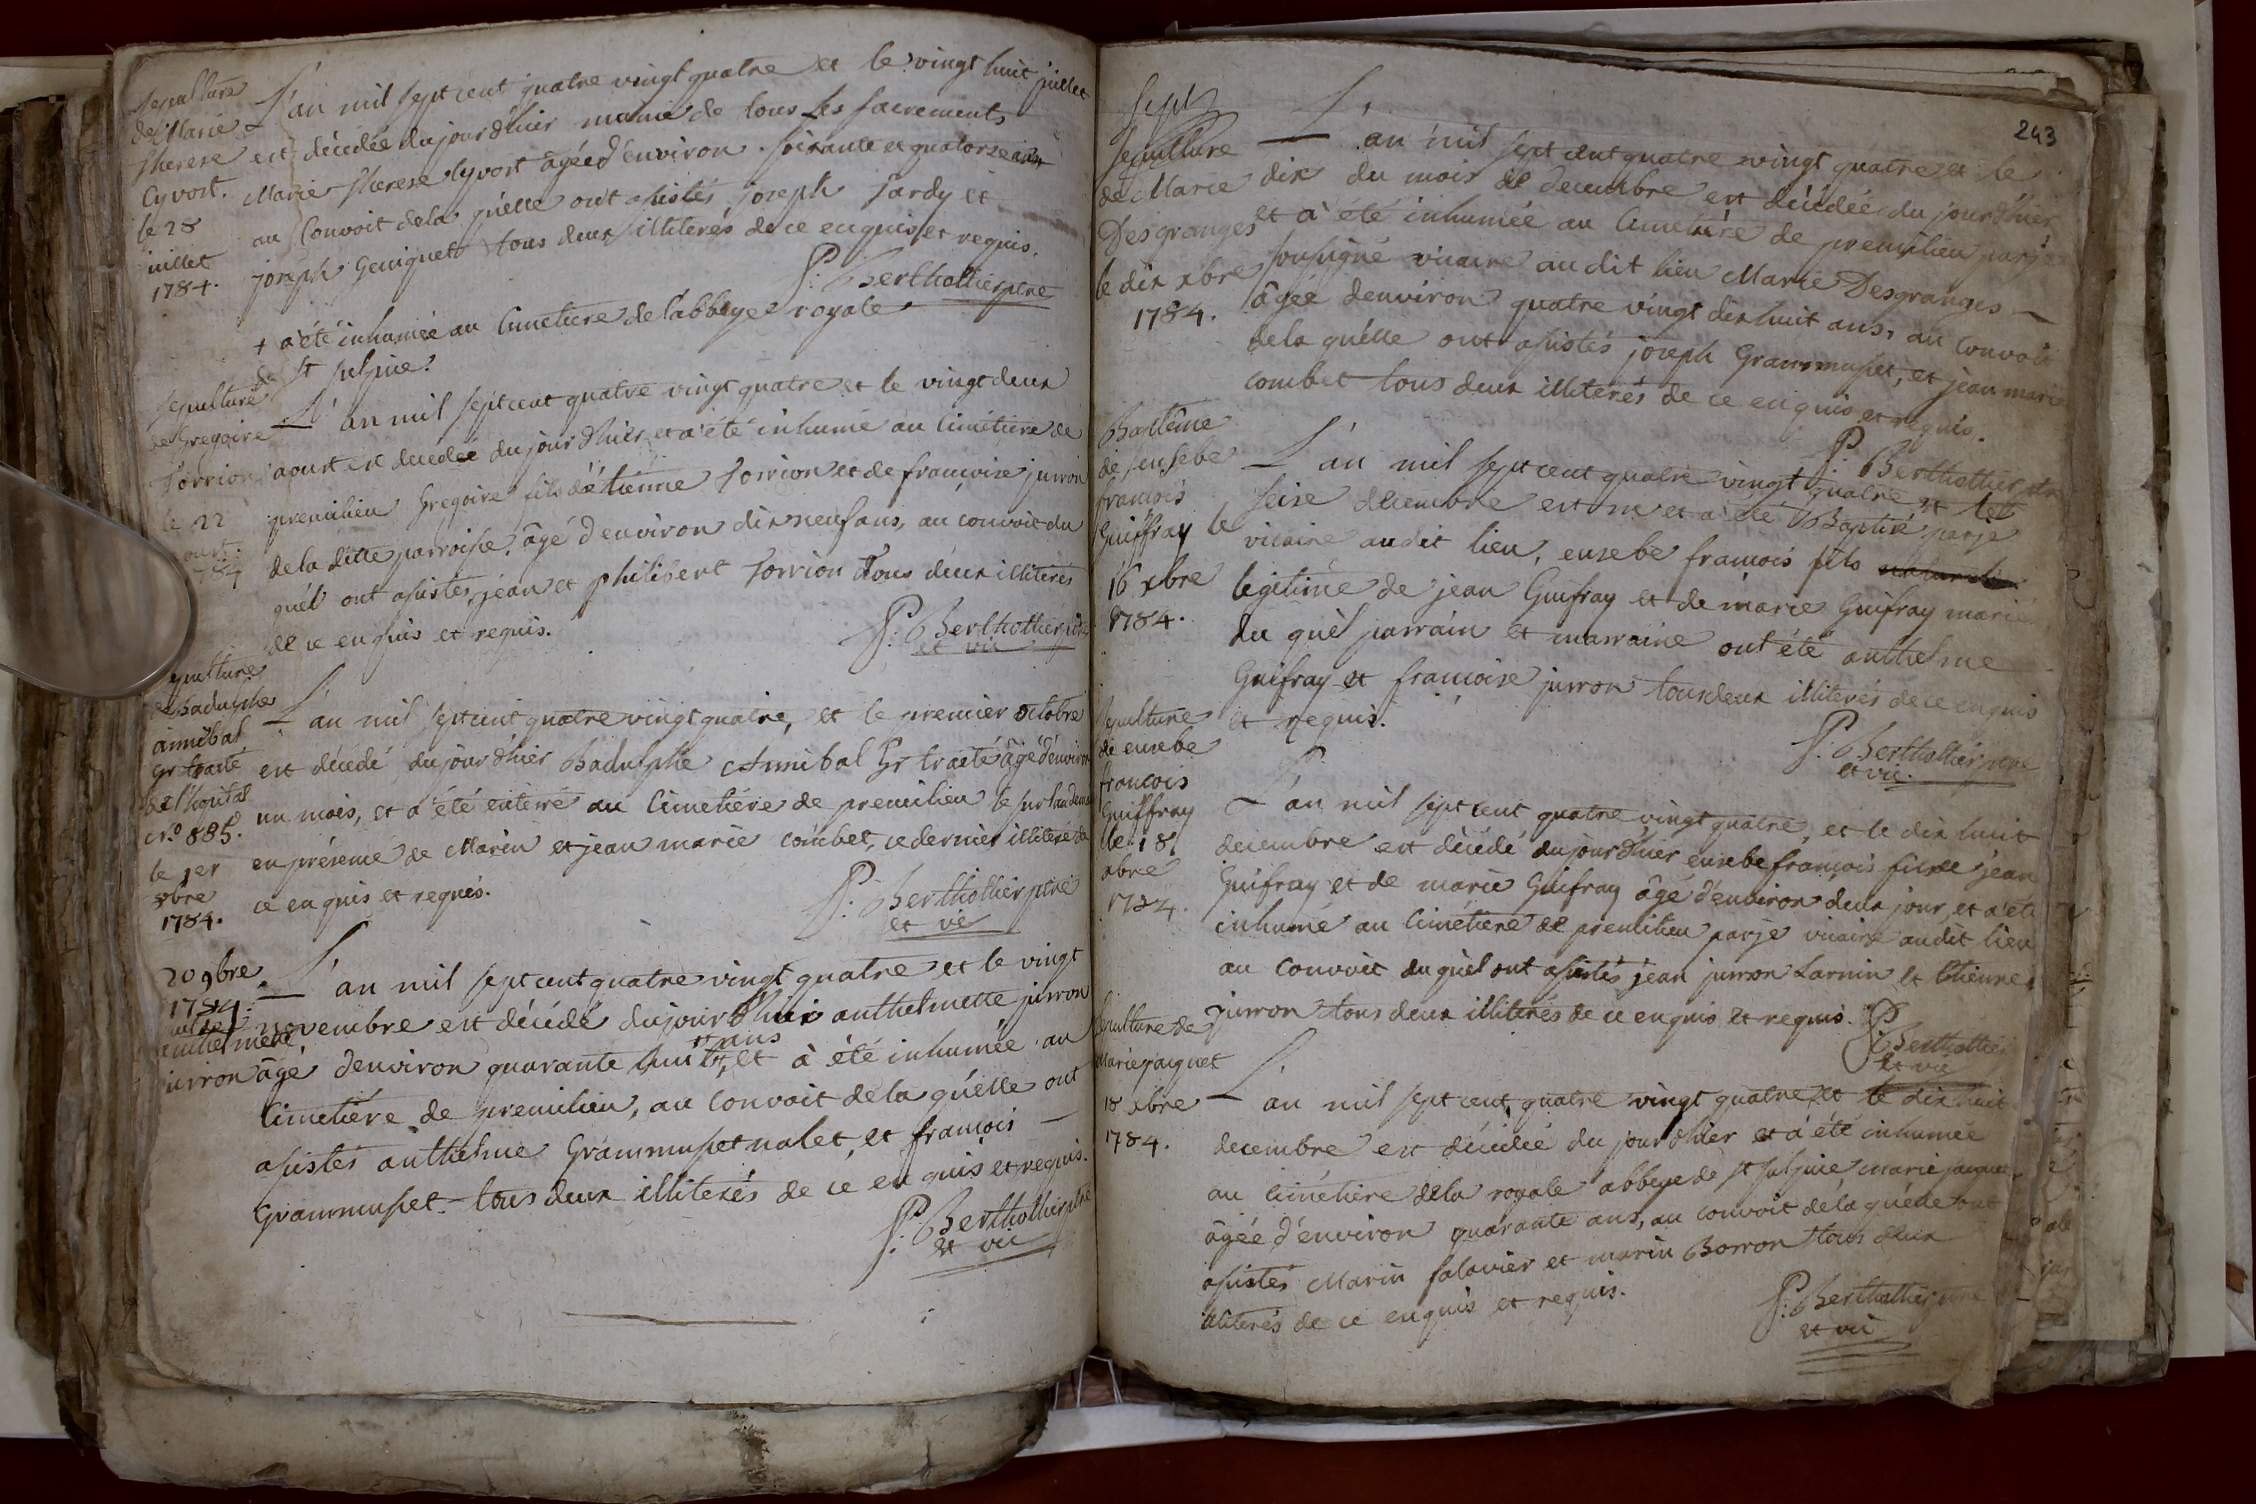 Sepulture
de Marie
therese
Cyvort.
le 28
juillet
1784.
L'an mil sept cent quatre vingt quatre et le vingt huit juillet
est décédée du jour d'hier munie de tous les sacrements
Marie therese Cyvort âgée d'environ soixante et quatorze ans
au Convoit de la quélle ont asistés joseph Tardy et
joseph Genignet tous deux illiterés de ce enquis et requis.
P: Berthollier ptre
+ a été inhumée au Cimetiere de l'abbaye royale
de St sulpice.
sepulture
de Gregoire
Torrion
le 22
aoust
1784
L'an mil sept cent quatre vingt quatre et le vingt deux
aoust est decedée du jour d'hier et a été inhumé au Cimétiere de
premilieu Gregoire fils d'étienne Torrion et de francoise jurron
de la ditte parroisse, âgé d'environ dix neuf ans, au convoit du
quél ont asistés, jean et philibert Torrion tous deux illiterés
de ce enquis et requis.
P: Berthollier ptre
et vic
sepulture
de Badulphe
annibal
gr traité
de l'hopital
N.º 885.
le 1er
8bre
1784.
L'an mil sept cent quatre vingt quatre, et le premier octobre
est décédé du jour d'hier Badulphe Annibal Gr traité âgé d'environ
un mois, et a été enterré au Cimetiére de premilieu le surlandemain
en présence de Marin et jean marie combet, ce dernier illiteré de
ce enquis et requis.
P: Berthollier ptre
et vic
20 9bre
1784.
anthelmette
jurron
L'an mil sept cent quatre vingt quatre et le vingt
novembre est décédé du jour d'hier anthelmette jurron
âgé d'environ quarante huit ans, et à été inhumée au
Cimetiére de premilieu, au convoit de la quélle ont
asistés anthelme Grammuset nalet, et francois
Grammuset tous deux illiterés de ce enquis et requis.
P: Berthollier ptre
et vic
243
Sept
sepulture
de Marie
Desgranges
le dix xbre
1784.
L'an mil sept cent quatre vingt quatre et le
dix du mois de decembre est décédée du jour d'hier
et a été inhumée au Cimetiére de premilieu par je
sousigné vicaire au dit lieu Marie Desgranges
âgée d'environ quatre vingt dix huit ans, au convoit
de la quélle ont asistés joseph Grammuset, et jean marie
combet tous deux illiterés de ce enquis et requis.
P: Berthollier ptre
Baptême
de eusebe
francois
Guiffray le
16 xbre
1784.
L'an mil sept cent quatre vingt quatre et le
seise decembre est né et a été Baptisé par je
vicaire audit lieu, eusebe francois fils
legitime de jean Guifray et de marie Guifray mariés
du quél parrain et marraine ont été anthelme
Guifray et francoise jurron tous deux illiterés de ce enquis
et requis.
P: Berthollier ptre
et vic.
sepulture
de eusebe
francois
Guiffray
le 18
xbre
1784.
L'an mil sept cent quatre vingt quatre, et le dix huit
decembre est décédé du jour d'hier eusebe francois fils de jean
Guifray et de marie Guifray âgé d'environ deux jour, et a été
inhumé au Cimétiere de premilieu par je vicaire audit lieu
au convoit du quél ont asistés jean jurron Larnin et Etienne
jurron tous deux illiterés de ce enquis et requis.
P: Berthollier
et vic
Sepulture de
Marie paquet
18 xbre
1784.
L'an mil sept cent quatre vingt quatre, et le dix huit
decembre est décédée du jour d'hier et a été inhumée
au Cimétiere de la royale abbaye de St sulpice marie paquet
âgée d'environ quarante ans, au convoit de la quélle ont
asistés Marin salavier et marin Borron tous deux
illiterés de ce enquis et requis.
P: Berthollier ptre
et vic